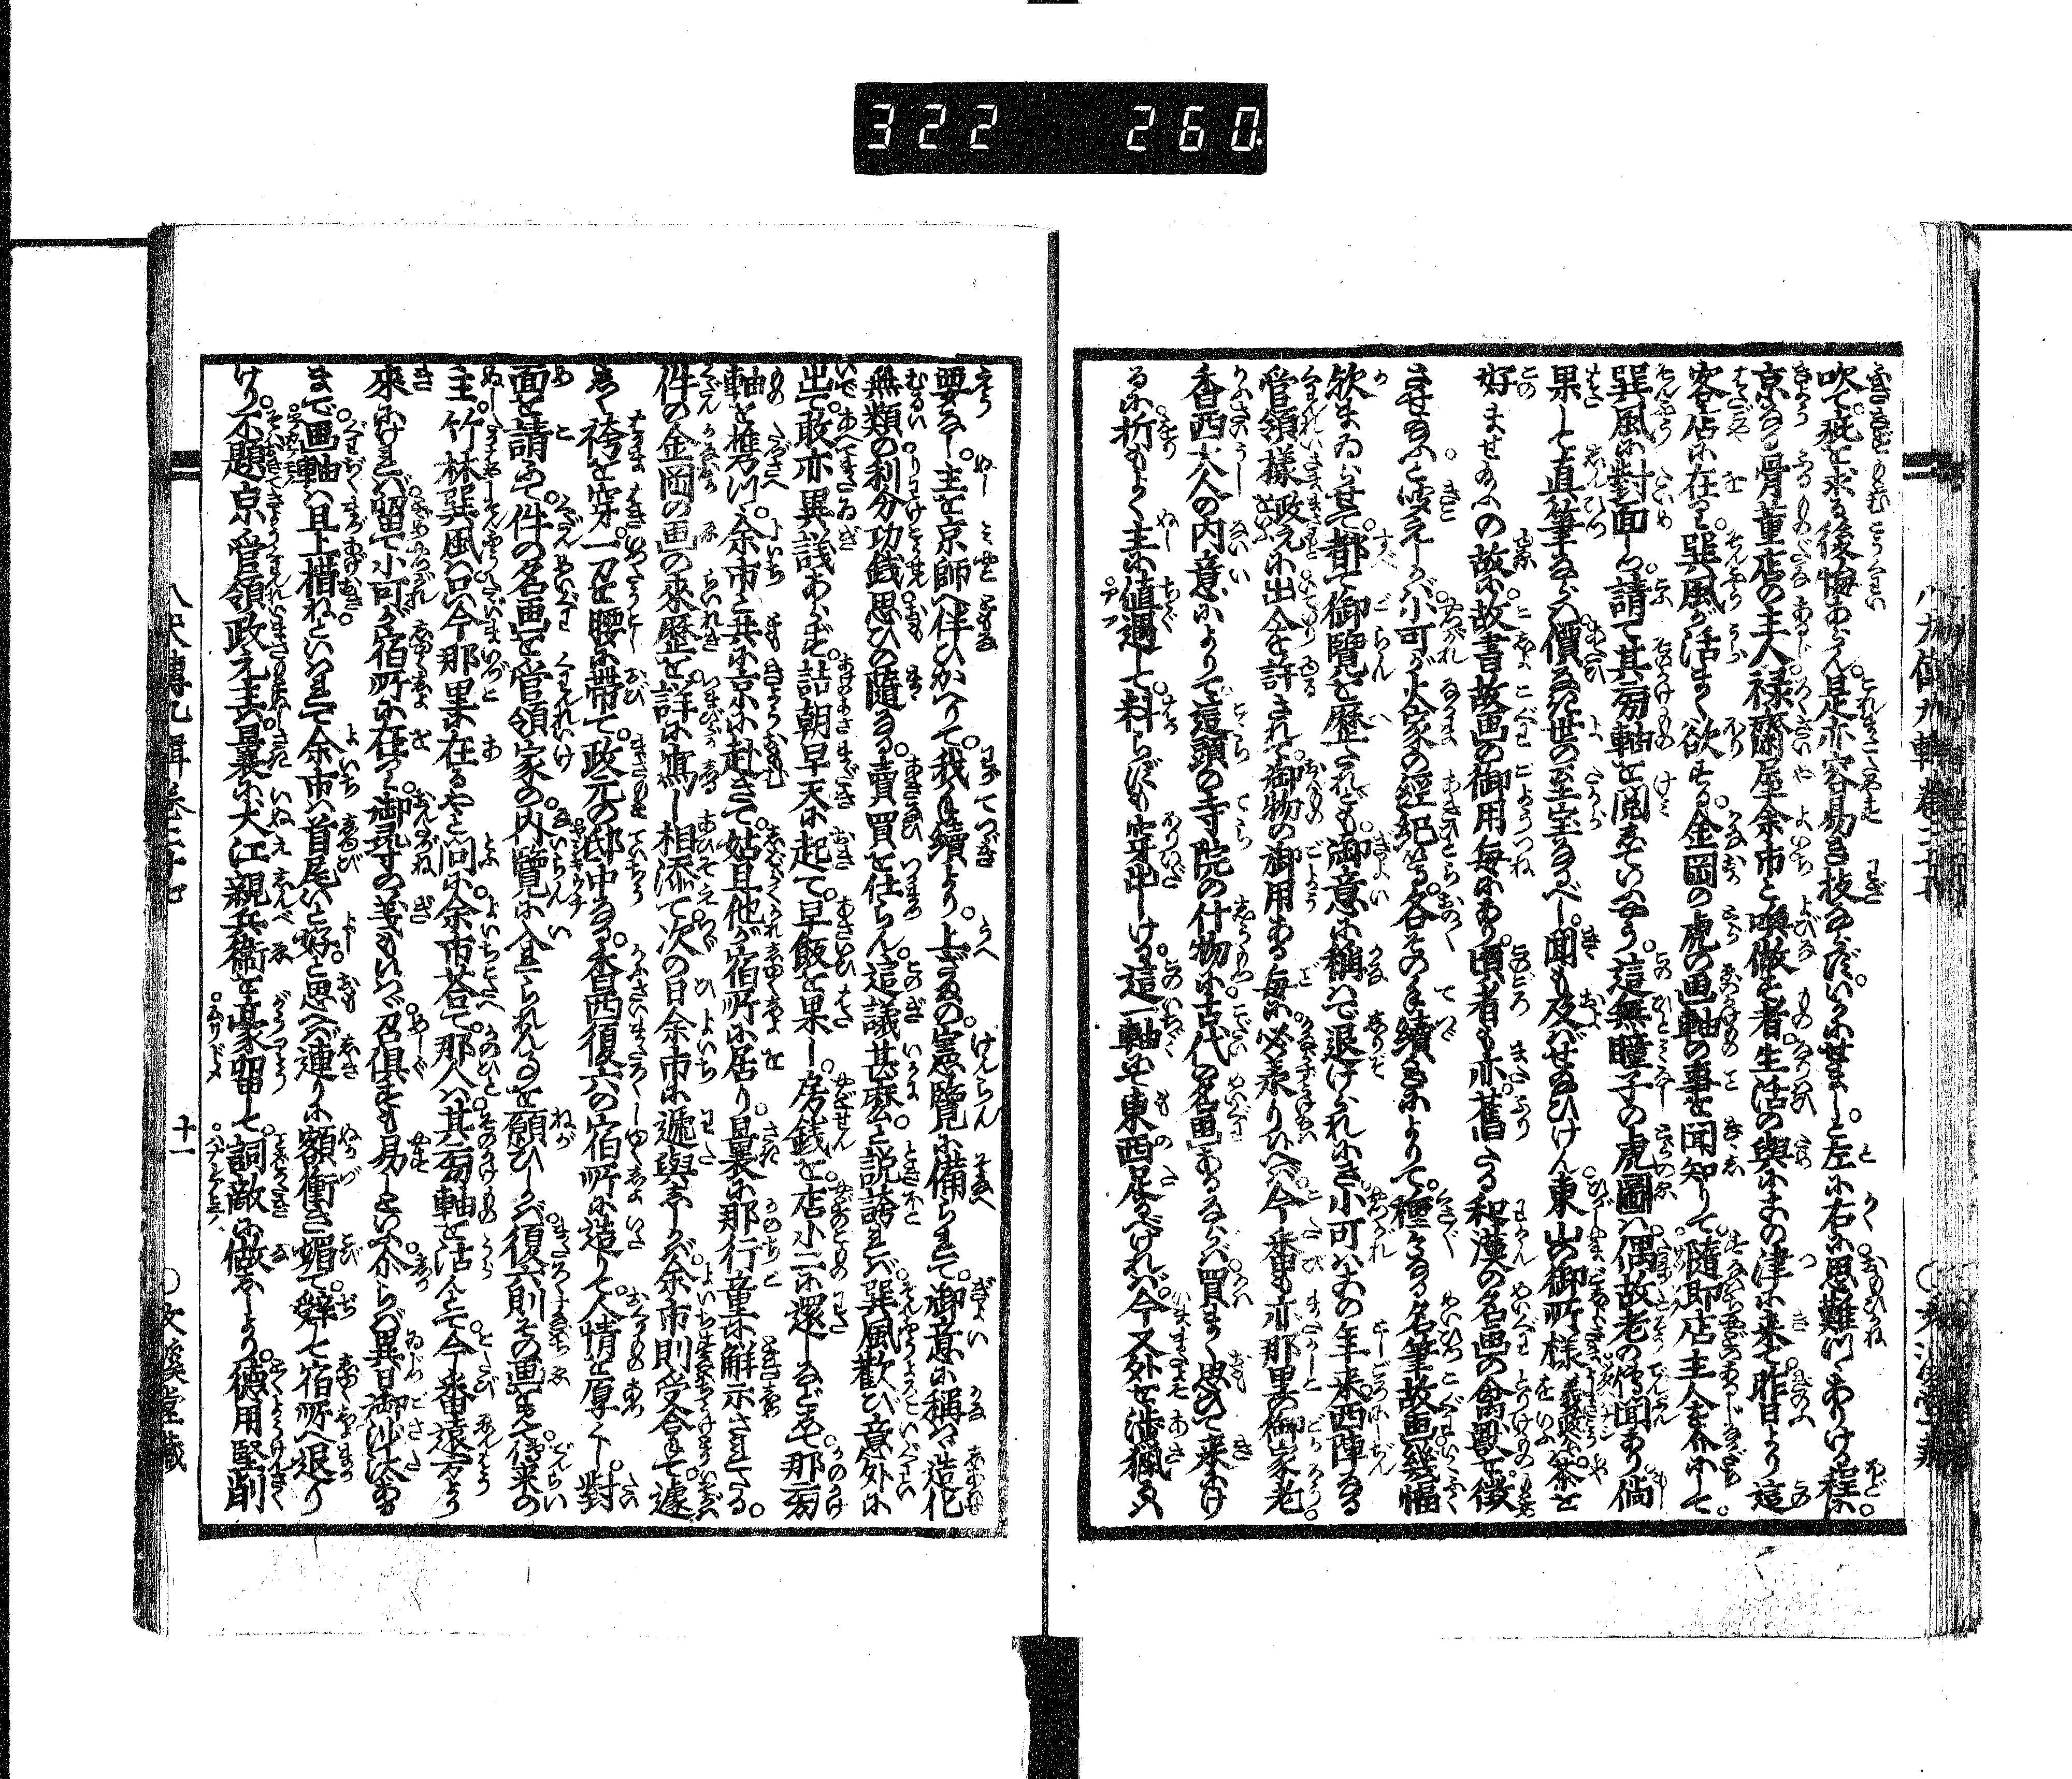 322 260
吹て疵を求る後悔あらん。是亦容易き技ならねば、いかにせまし。と左に右に思難つゝありける程に。
京なる骨董店の主人、禄齋屋余市と喚做す者、生活の與にこの津に来て、昨日より這
客店に在り。巽風が活まく欲する、金岡の虎の画軸の事を聞知りて、随即店主人を介にして。
巽風に対面しつ、請て其匆軸を閲していふやう、這無瞳子の虎圖は、偶故老の傳聞あり。倘
果して真筆ならば、價なき世の至宝なるべし。聞も及ばせ給ひけん、東山の御所様
好ませ給ふの故に、故書故画の御用毎にあり。頃者も亦舊たる、和漢の名画の禽獣を徴
させ給ふと聞えしかば、小可が火家の經紀等、各その手続きによりて、種々なる名筆故画幾幅
欤まゐらせて、都て御覧を歴たれども、御意に稱はで退けられにき。小可はこの年来、西陣なる
管領様政元に出入を許されて、御物の御用ある毎に、必参りいへば、今番も亦那里の御家老
香西大人の内意によりて、這頭の寺院の什物に、古代の名画あるならば、買まく思ひて来にけ
るに、折もよく主に値遇して、料らずも穿出しける、這一軸を東西足ぬべければ、今又外を渉獵るに
要なし。主を京師へ伴ひかへりて、我手続より上ざまの、憲覧に備られて、御意に稱はゞ造化
無類の利分、功銭思ひの随なる、賣買を仕らん。這議甚麼と説誇れば、巽風歓び意外に
出て、敢亦異議あらず。詰朝早天に起て、早飯を果し、房銭を店小二に還しなどして、那匆
軸を携つゝ、余市と共に京に赴きて、姑且他が宿所に居り。曩に那行童に解示されたる。
件の金岡の画の来歴を、詳に寫し相添て、次の日余市に逓與しかば、余市則受合て、遽
しく袴を穿、一刀を腰に帯て、政元の邸中なる、香西復六の宿所に造りて、人情を厚くし。對
面を請ふて、件の名画を管領家の、内覧に入られんことを願ひしかば、復六則その画を見て、傳来の
主竹林巽風は、只今那里に在るやと問に、余市答て、那人は其匆軸を活んとて、今番遠方より
來にければ、留て小可が宿所に在り。御尋の義もいはゞ、召倶せんも易しといふ。介らば異日御沙汰ある
まで、画軸は且上措ねといはれて、余市は首尾いと好。と思へば連りに額衝き媚て、辭して宿所へ退り
けり。不題京管領政元主は、曩に犬江親兵衛を豪留して、詞敵に做ししより、徳用堅削
十一